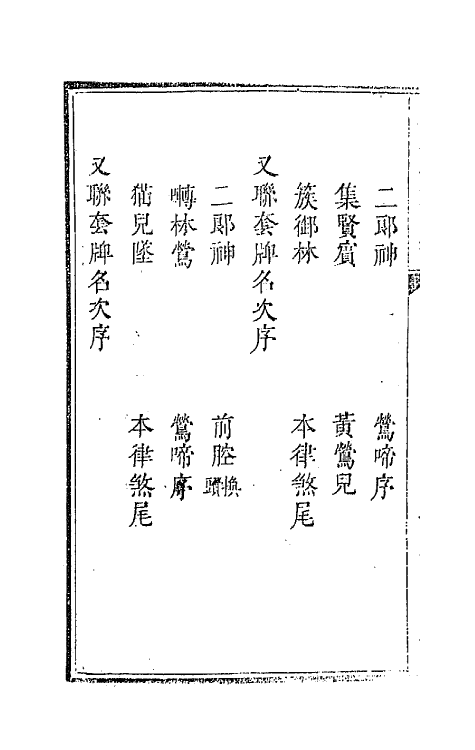 二郎神　鶯啼序
集賢賓　黃鶯兒
簇御林　本律煞尾
又聯套牌名次序
二郎神　前腔換頭
囀林鶯　鶯啼序
猫兒墜　本律煞尾
又聯套牌名次序